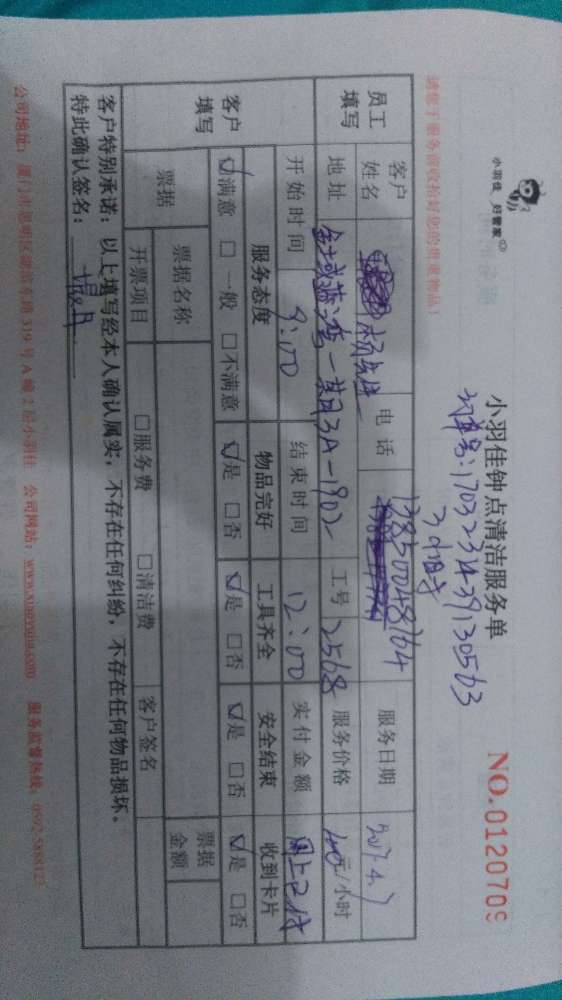 小羽佳 好管家
小羽佳钟点清洁服务单
NO.0120709
订单号:1703231439130563
3小时
请您于服务前收拾好您的贵重物品!
员工填写
客户姓名
杨先生
电话
13850048764
服务日期
2017.4.7
地址
金域蓝湾一英风3A-1902
工号
2568
服务价格
元/小时
客户填写
开始时间
9:00
结束时间
12:00
实付金额
网上已付
服务态度 物品完好 工具齐全 安全结束 收到卡片
☑满意 □一般 □不满意 ☑是 □否 ☑是 □否 ☑是 □否 ☑是 □否
票据
票据名称
票据金额
开票项目
□服务费 □清洁费
客户签名
客户特别承诺:以上填写经本人确认属实,不存在任何纠纷,不存在任何物品损坏。
特此确认签名:
公司地址:厦门市思明区湖滨东路319号A幢2层小羽佳 公司网站:www.xiaoyujia.com 服务监督热线:0592-5888123